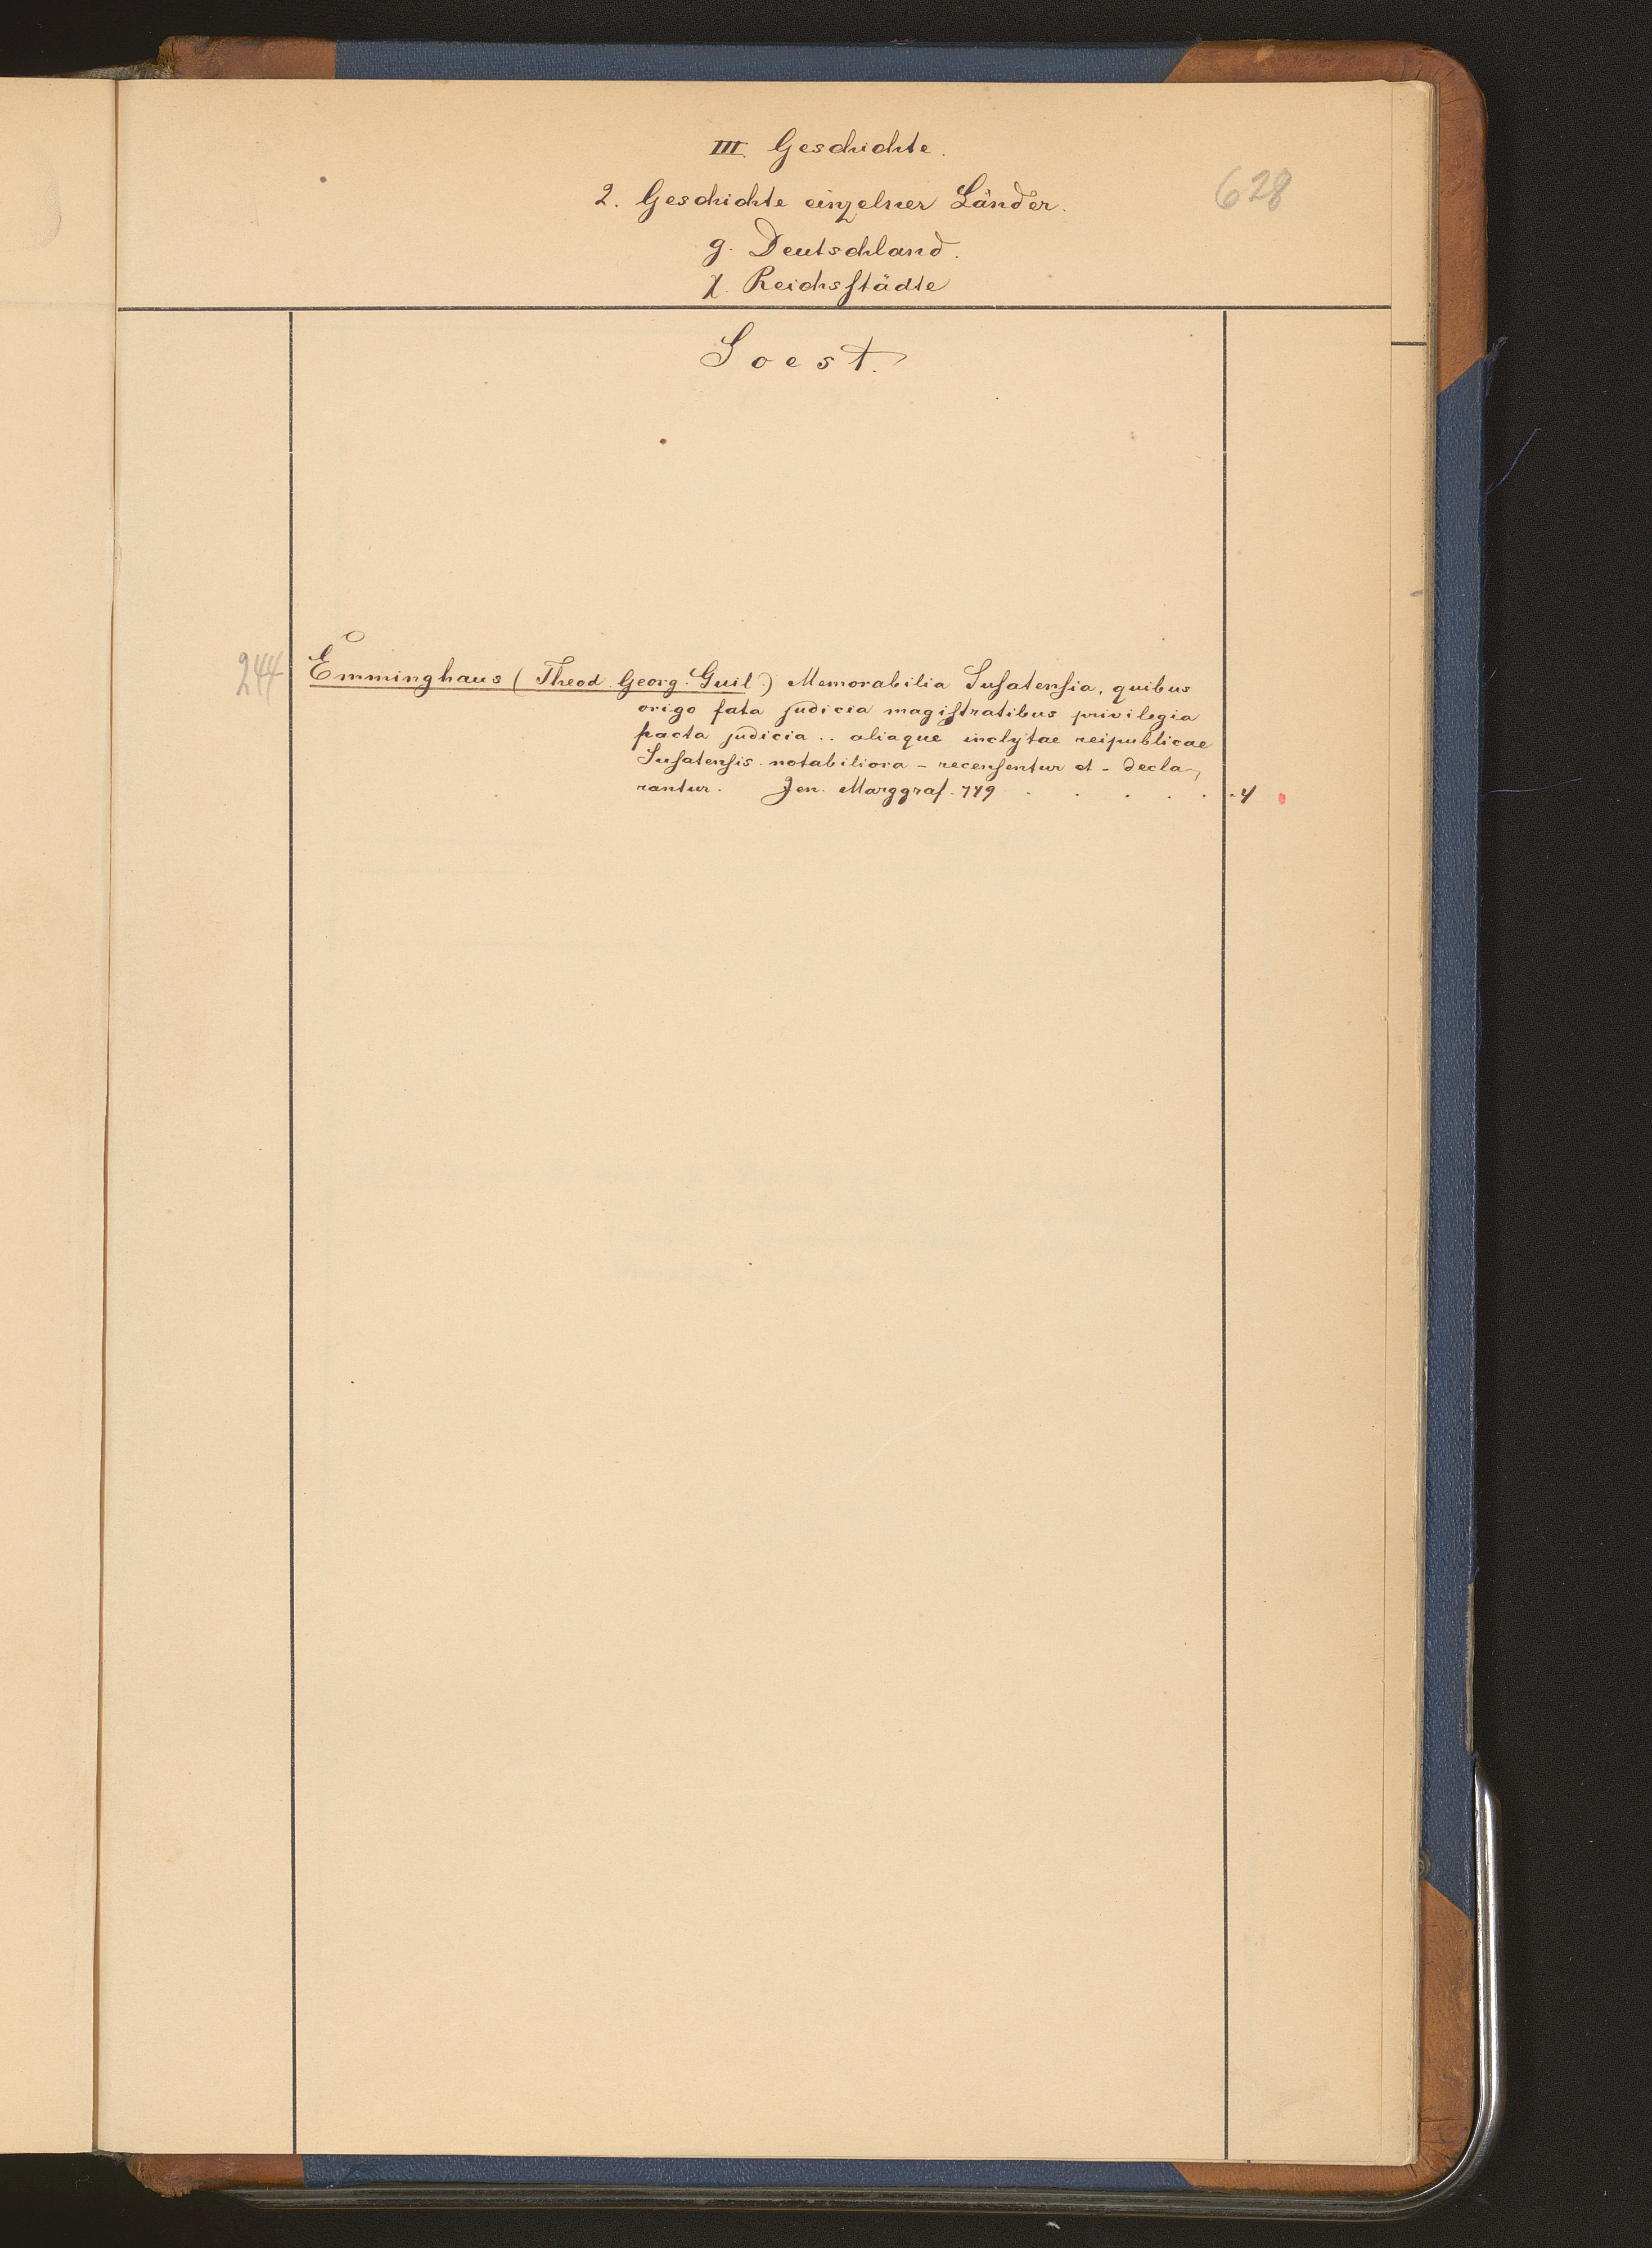 III. Geschichte.
628
2. Geschichte einzelner Länder.
g. Deutschland.
χ Reichsstädte
Soest.
244 Emminghaus (Theod. Georg. Guil.) Memorabilia Susatensia, quibus
origo fata judicia magistratibus privilegia
pacta judicia .. aliaque inclytae reipublicae
Susatensis notabiliora - recensentur et - decla-
rantur. Jen. Marggraf. 749 . . . . . . 4